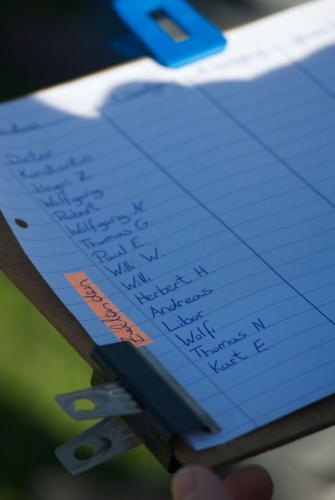 Dieter
Konstantin
Jürgen Z.
Wolfgang
Robert
Wolfgang N
Thomas G.
Paul E.
Willi W.
Willi
Herbert H.
Andreas
Libor
Wolfi
Thomas N.
Kurt E.